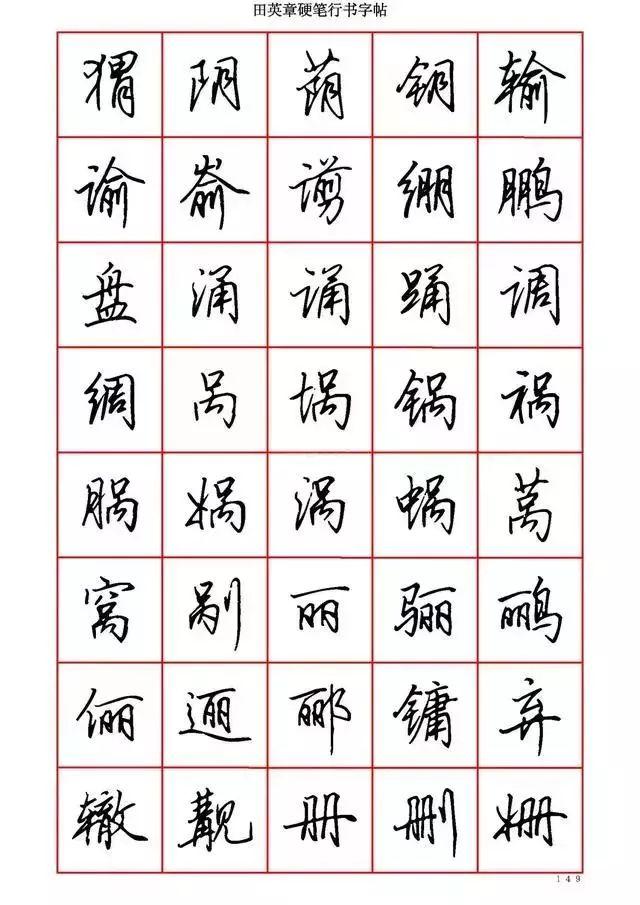 田英章硬笔行书字帖
猬 阴 荫 钥 输
谕 嵛 谫 绷 鹏
盘 涌 诵 踊 调
绸 呙 埚 锅 祸
脶 娲 涡 蜗 莴
窝 剐 丽 骊 鹂
俪 逦 郦 镛 弃
辙 觏 册 删 姗
149